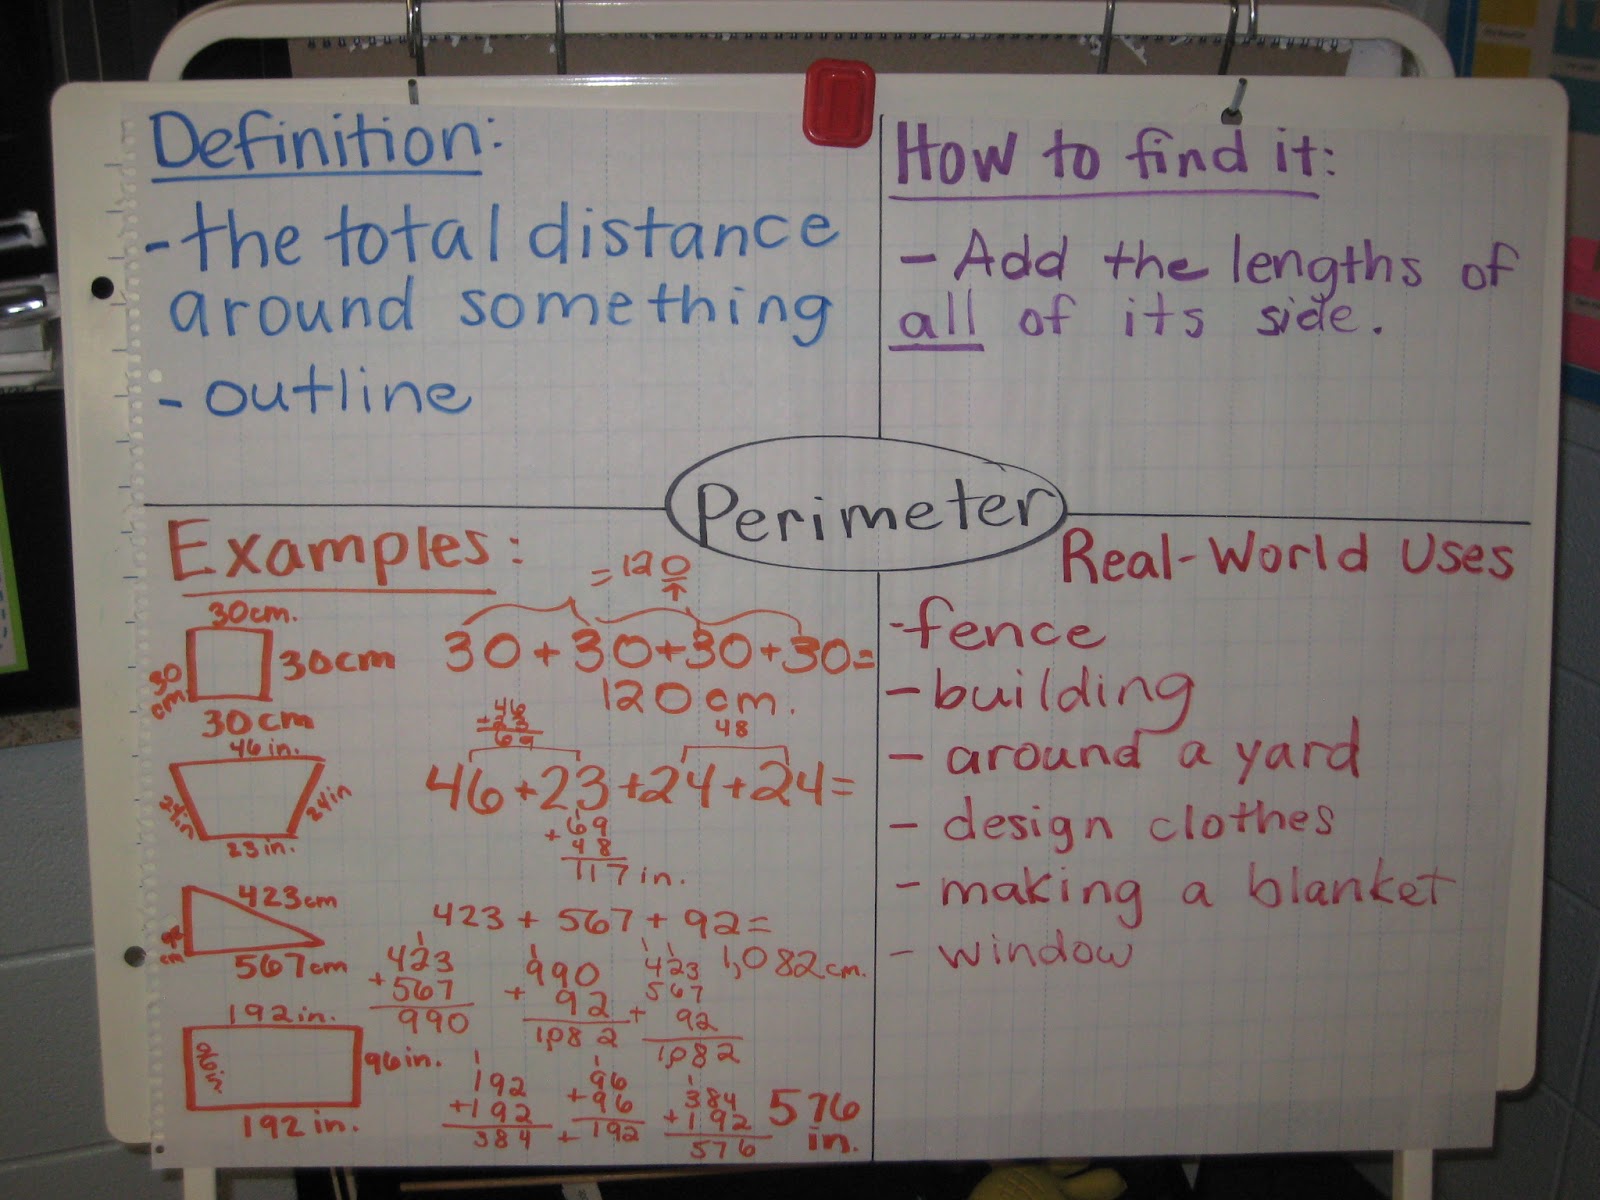 Definition:
- the total distance
around something
- outline
How to find it:
- Add the lengths of
all of its side.
Perimeter
Examples:
30cm.
30cm
30
cm.
30cm
= 120
30 + 30 + 30 + 30 =
120 cm.
46 in.
24in
24in
23 in.
46
+ 23
69
48
46 + 23 + 24 + 24 =
1
69
+ 48
117 in.
423cm
cm
567cm
423 + 567 + 92 =
1,082 cm.
1
423
+ 567
990
1
990
+ 92
1,082
1 1
423
567
+ 92
1,082
192 in.
96in.
96in.
192 in.
1
192
+ 192
384
1
96
+ 96
192
+
1
384
+ 192
576
576
in.
Real-World Uses
- fence
- building
- around a yard
- design clothes
- making a blanket
- window